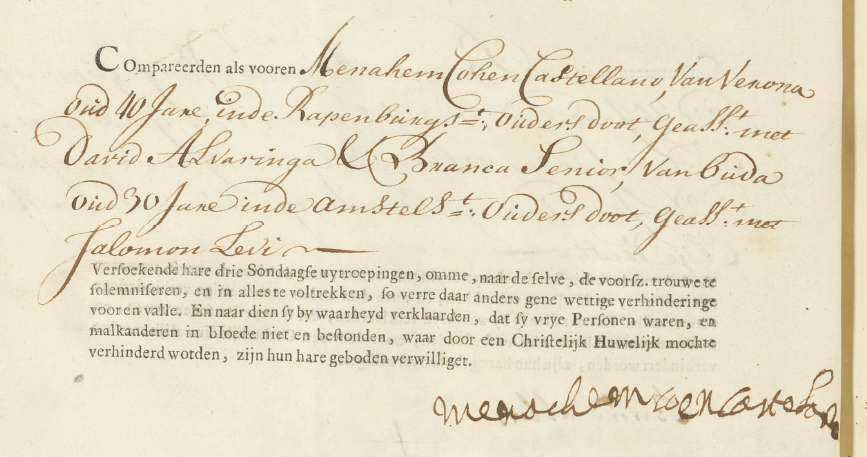 COmpareerden als vooren Menahem Cohen Castellano, Van Verona
oud 40 Jare, inde Rapenburgs=t:, Ouders doot, geass:t met
David Alvaringa & Branca Senior, van Buda
oud 30 Jare inde Amstels=t: Ouders doot, geass:t met
Salomon Levi
Versoekende hare drie Sondaagse uytroepingen, omme, naar de selve, de voorsz. trouwe te
solemniseren, en in alles te voltrekken, so verre daar anders gene wettige verhinderinge
voor en valle. En naar dien sy by waarheyd verklaarden, dat sy vrye Personen waren, en
malkanderen in bloede niet en bestonden, waar door een Christelijk Huwelijk mochte
verhinderd worden, zijn hun hare geboden verwilliget.
menachem coen